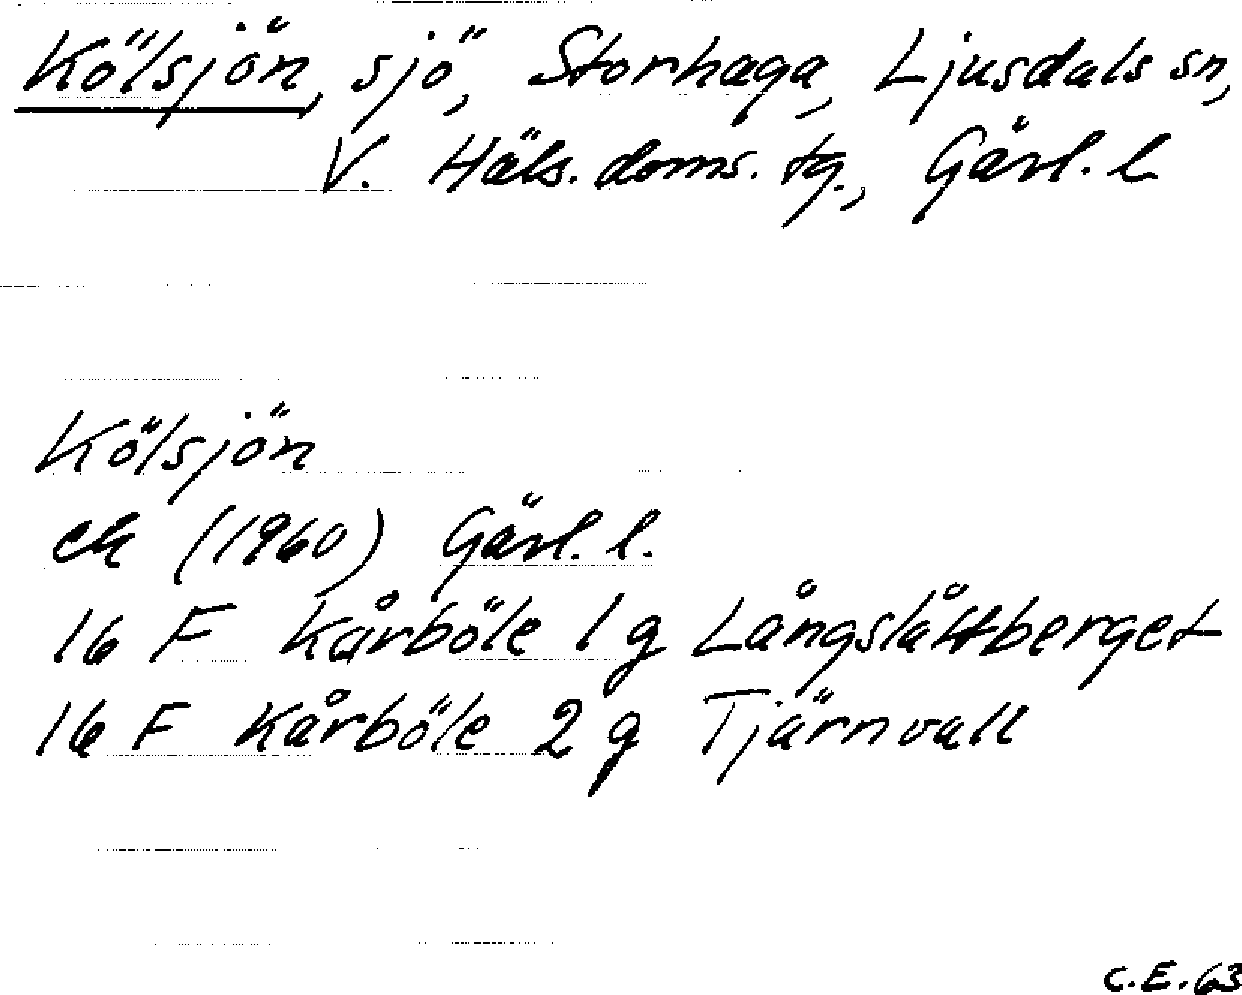 Kölsjön, sjö, Storhaga, Ljusdals sn,
V. Häls. doms. tg., Gävl. l
Kölsjön
ek (1960) Gävl. l.
16 F Kårböle 1 g Långslåttberget
16 F Kårböle 2 g Tjärnvall
C.E. 63